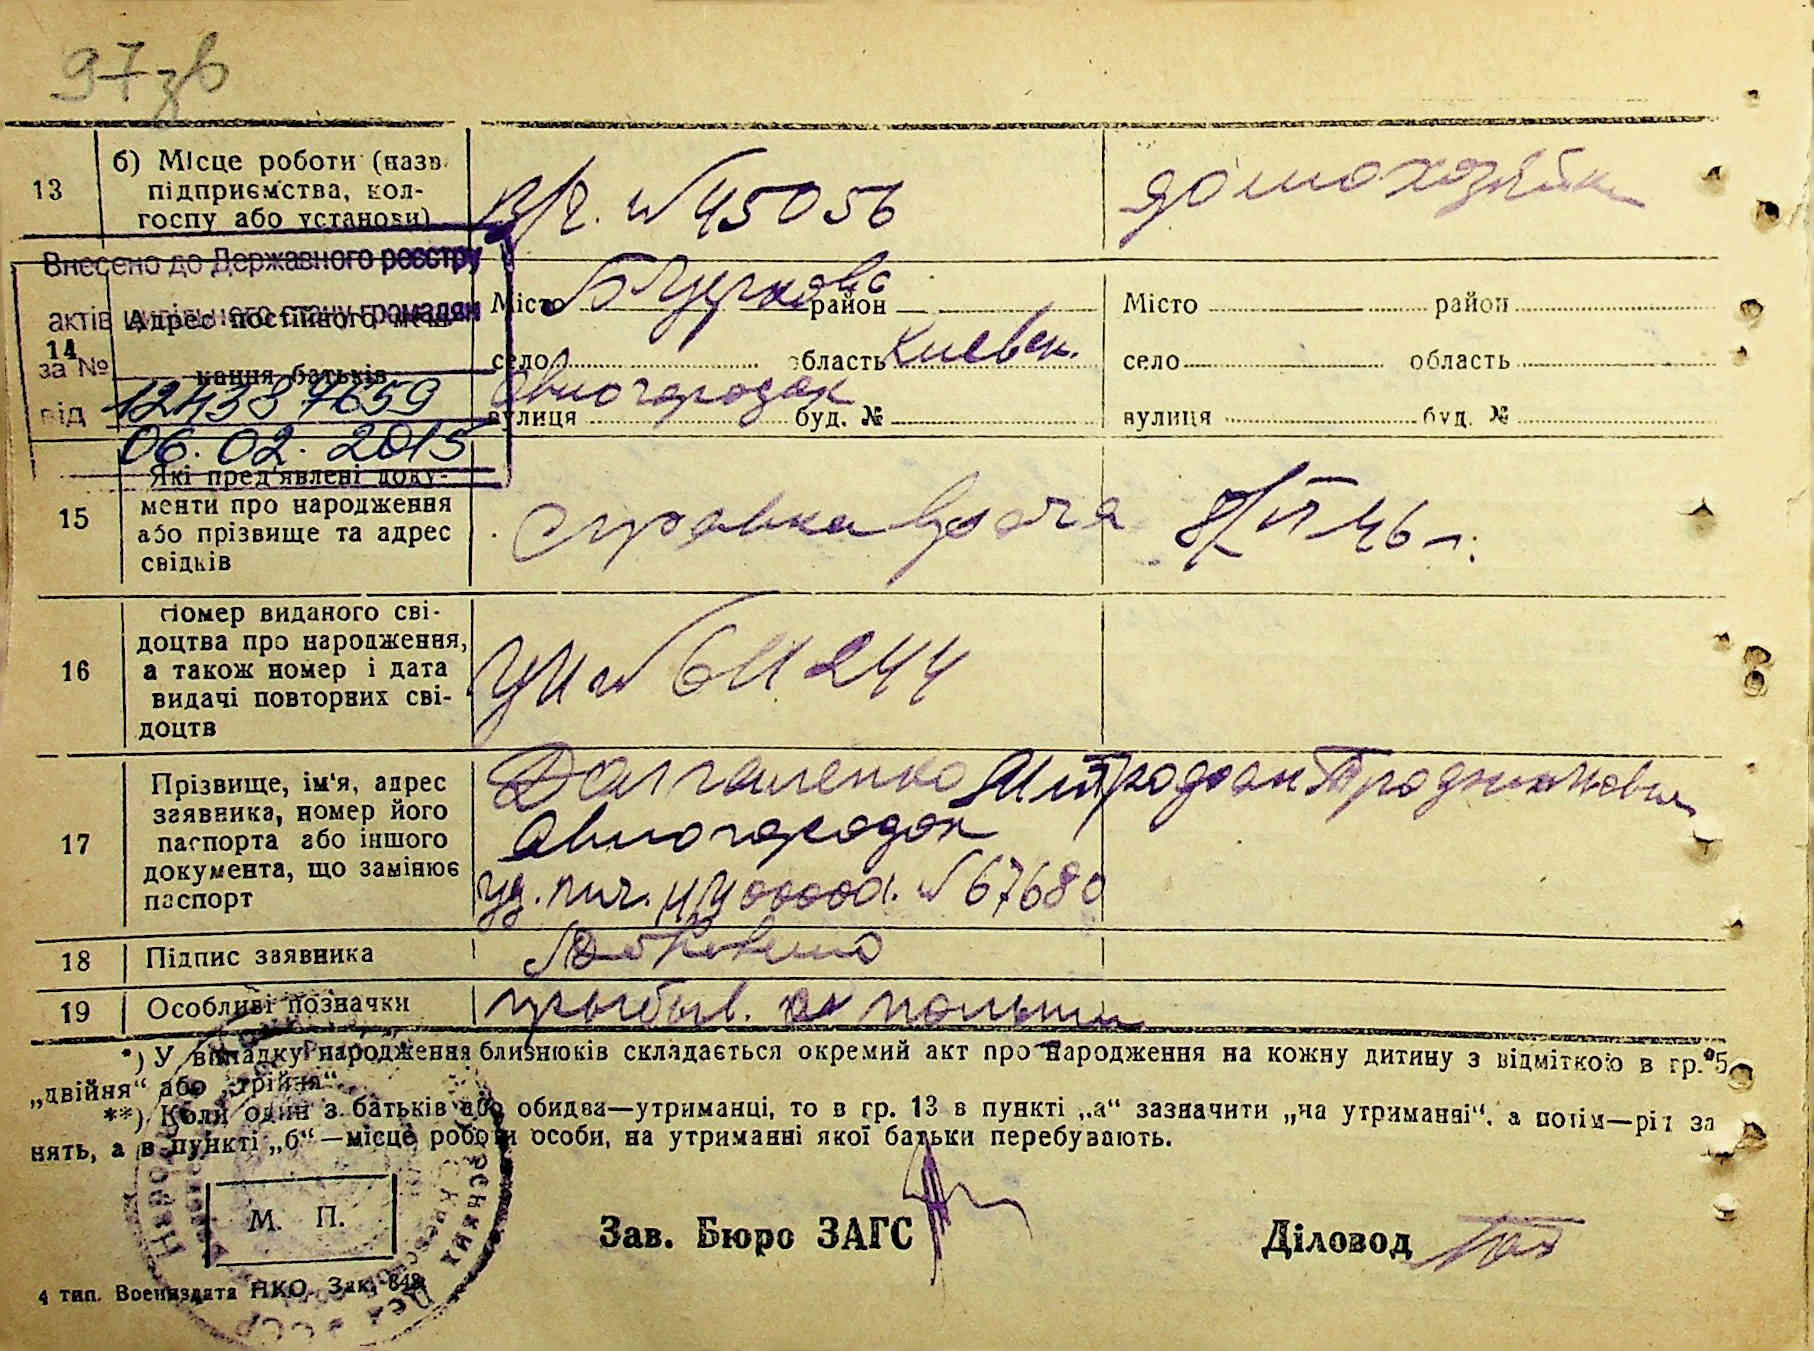 97 зв
13 б) Місце роботи (назв. підприємства, колгоспу або установи) в/ч. №45056 домохозяйка
Внесено до Державного реєстру
актів цивільного стану громадян
за № 124387659
від 06.02.2015
14 Адрес постійного мешкання батьків
Місто Б Церковь район Місто район
село область Киевск. село область
Авиогородок
вулиця буд. № вулиця буд. №
15 Які пред'явлені документи про народження або прізвище та адрес свідків справка врача 8/VI 46 г.
16 Номер виданого свідоцтва про народження, а також номер і дата видачі повторних свідоцтв № 611244
17 Прізвище, ім'я, адрес заявника, номер його паспорта або іншого документа, що замінює паспорт
Авиогородок
уд. лич. № 67680
18 Підпис заявника
19 Особливі позначки прыбыл. из польши
*) У випадку народження близнюків складається окремий акт про народження на кожну дитину з відміткою в гр. 5
„двійня“ або „трійня“.
**) Коли один з батьків або обидва—утриманці, то в гр. 13 в пункті „а“ зазначити „на утриманні“, а потім—рід за
нять, а в пункті „б“—місце роботи особи, на утриманні якої батьки перебувають.
М. П.
Зав. Бюро ЗАГС Діловод
4 тип. Воениздата НКО. Зак. 848